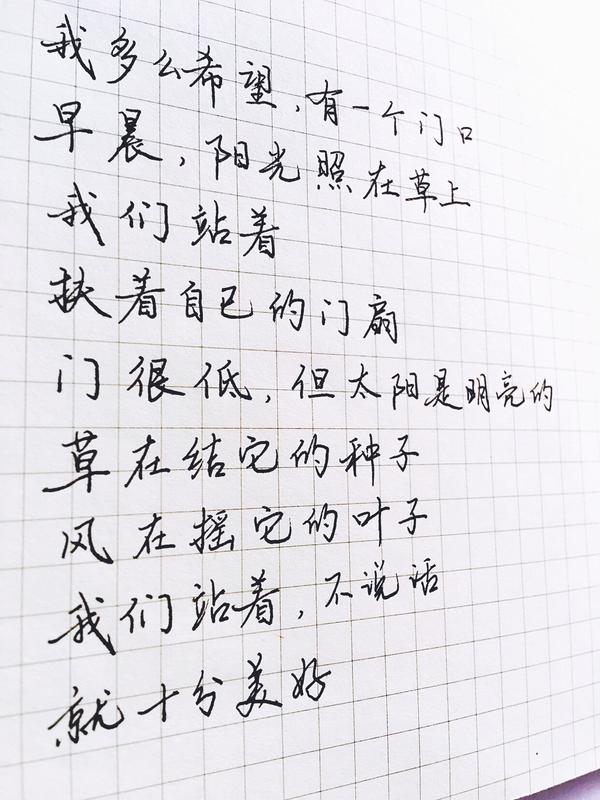 我多么希望，有一个门口
早晨，阳光照在草上
我们站着
扶着自己的门扇
门很低，但太阳是明亮的
草在结它的种子
风在摇它的叶子
我们站着，不说话
就十分美好